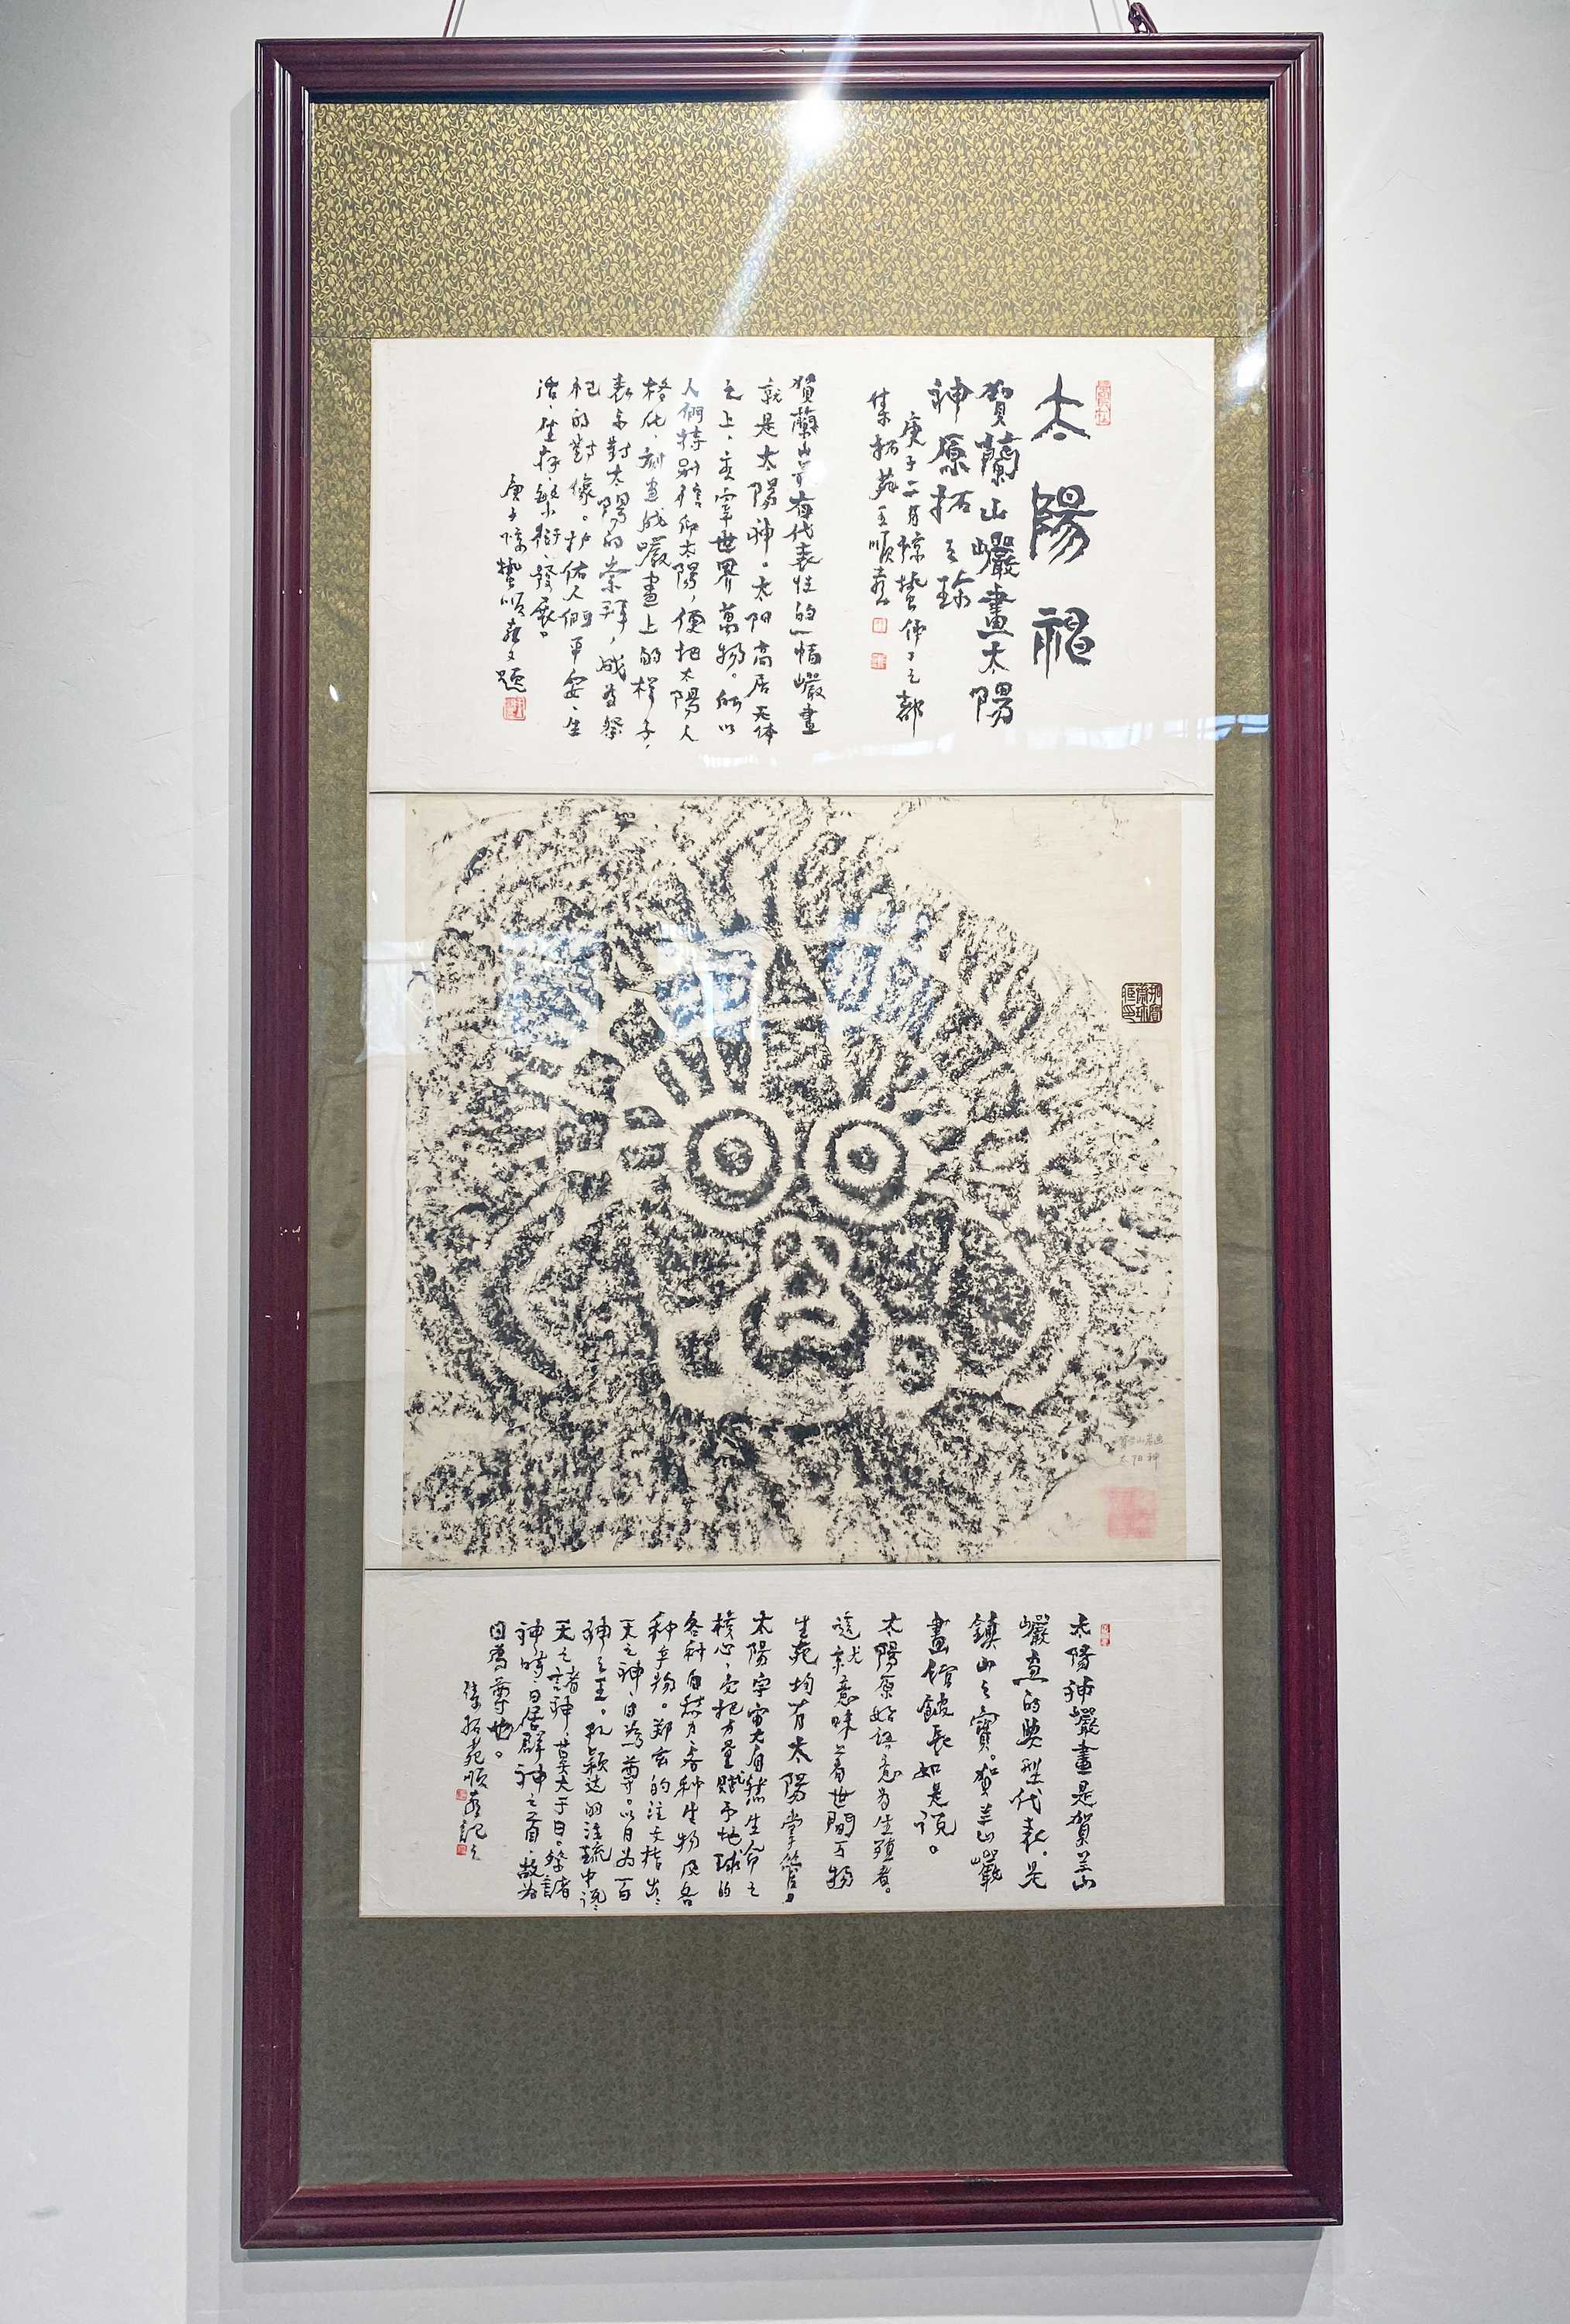 太陽神
賀蘭山巖畫太陽
神原拓之珎
庚子二月驚蟄傳丁之都
集拓苑王順喜
賀蘭山最有代表性的一幅巖畫
就是太陽神。太阳高居天体
之上，主宰世界萬物。所以
人們特别信仰太陽，便把太陽人
格化，刻畫成巖畫上的样子，
表示對太陽的崇拜，成為祭
祀的對像。护佑人們平安、生
活、生存、繁衍、發展。
庚子驚蟄順喜又題
賀兰山岩画
太阳神
太陽神巖畫是賀兰山
巖画的典型代表。是
鎮山之寶。賀兰山巖
畫館館長如是说。
太陽原始語意为生殖者。
這就意味着世間万物
生死均有太陽掌管。
太陽宇宙大自然生命之
核心，它把力量赋予地球的
各种自然力各种生物及各
种事物。郑玄的注文指出：
天之神日為尊。以日为百
神之王。孔颖达的注疏中说：
天之諸神，莫大于日。祭諸
神時，日居群神之首，故為
日為尊也。
集拓苑順喜記之